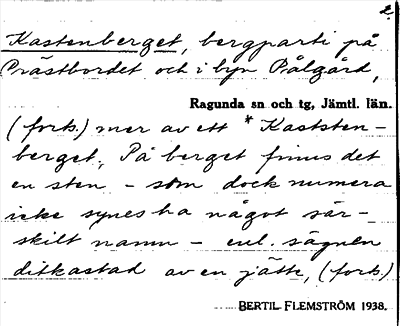 2.
Kastenberget, bergparti på
Prästbordet och i byn Pålgård,
Ragunda sn och tg, Jämtl. län.
(forts.) mer av ett * Kaststen-
berget. På berget finns det
en sten – som dock numera
icke synes ha något sär-
skilt namn – enl. sägnen
ditkastad av en jätte, (forts.)
BERTIL FLEMSTRÖM 1938.